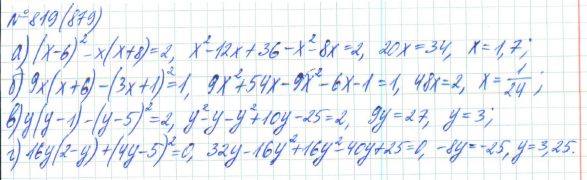 № 819 (879)
а) (x-6)² - x(x+8) = 2, x² - 12x + 36 - x² - 8x = 2, 20x = 34, x = 1,7;
б) 9x(x+6) - (3x+1)² = 1, 9x² + 54x - 9x² - 6x - 1 = 1, 48x = 2, x = 1/24;
в) y(y-1) - (y-5)² = 2, y² - y - y² + 10y - 25 = 2, 9y = 27, y = 3;
г) 16y(2-y) + (4y-5)² = 0, 32y - 16y² + 16y² - 40y + 25 = 0, -8y = -25, y = 3,25.